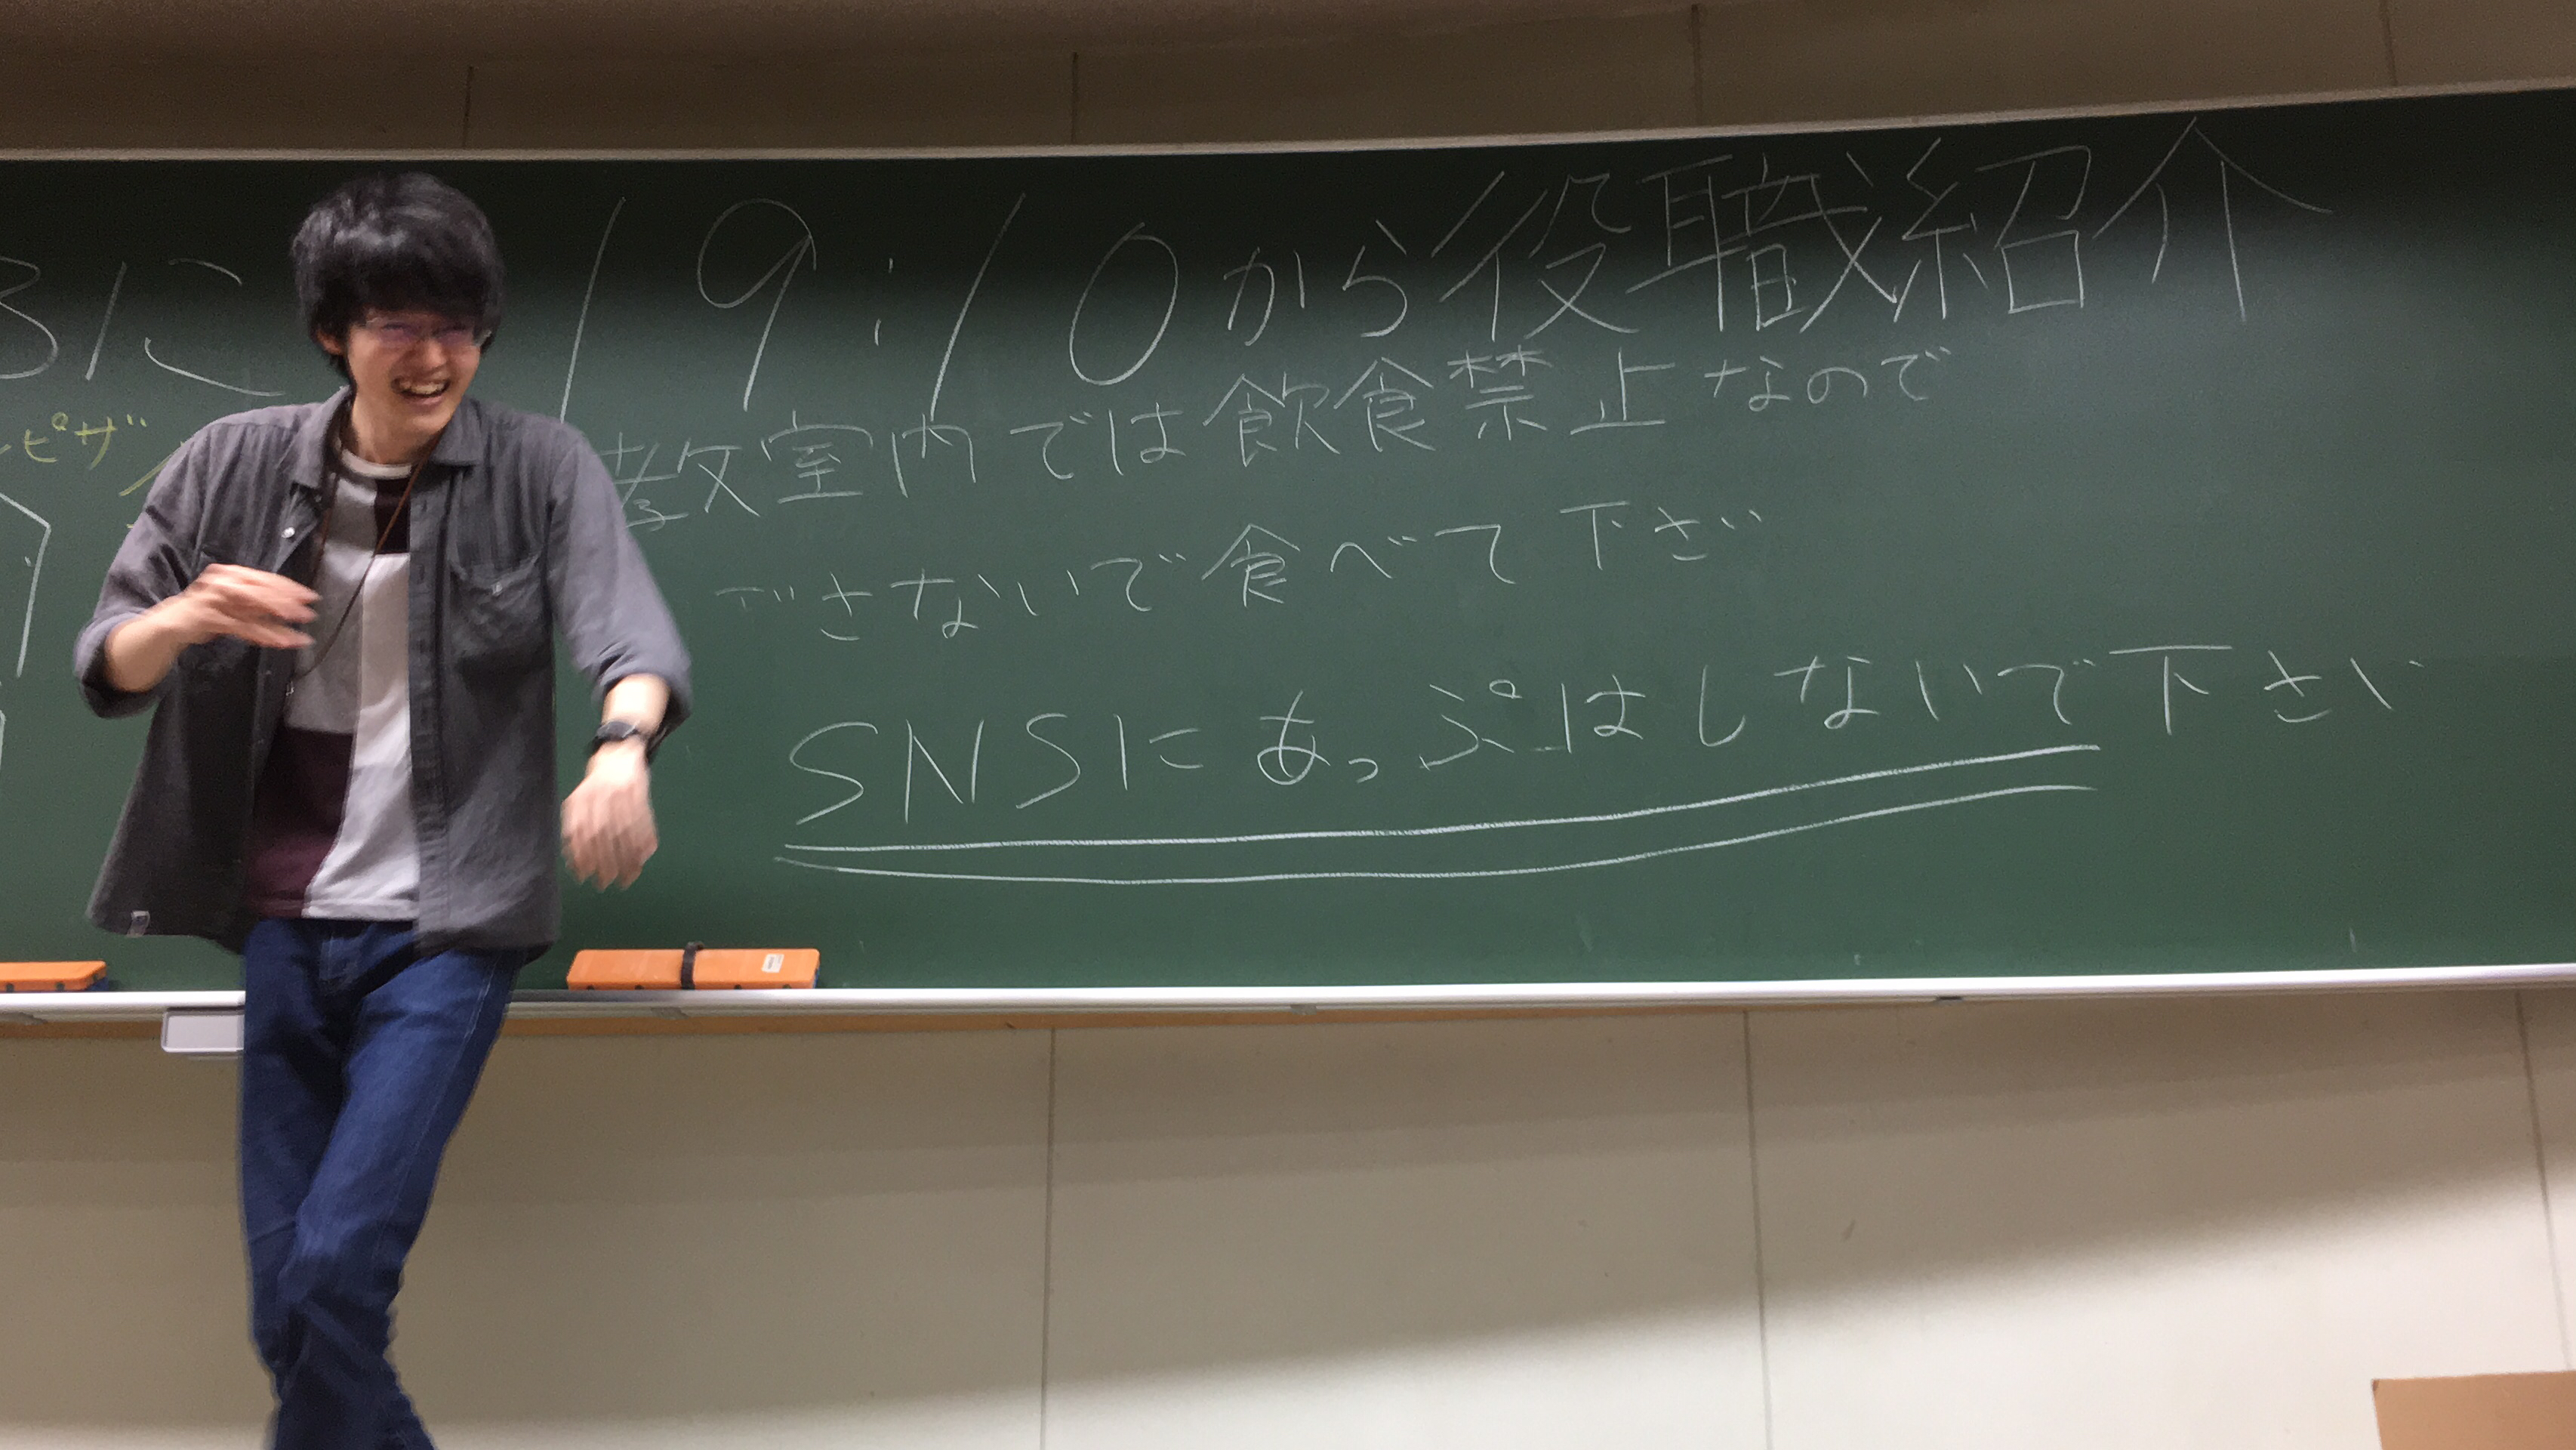 に 19:10から役職紹介
ピザ
教室内では飲食禁止なので
ださないで食べて下さい
SNSにあっぷはしないで下さい